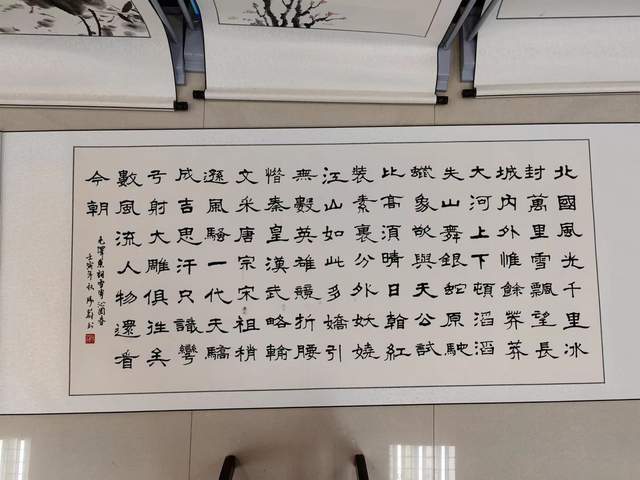 北國風光千里冰
封萬里雪飄望長
城內外惟餘莽莽
大河上下頓滔滔
失山舞銀蛇原馳
蠟象欲與天公試
比高須晴日翰紅
裝素裹分外妖嬈
江山如此多嬌引
無數英雄競折腰
惜秦皇漢武略輸
文采唐宗宋祖稍
遜風騷一代天驕
成吉思汗只識彎
弓射大雕俱往矣
數風流人物還看
今朝
毛澤東詞雪寄沁園春
壬寅年秋